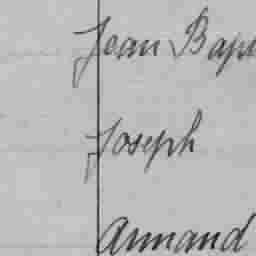 Jean Bapt
Joseph
Armand